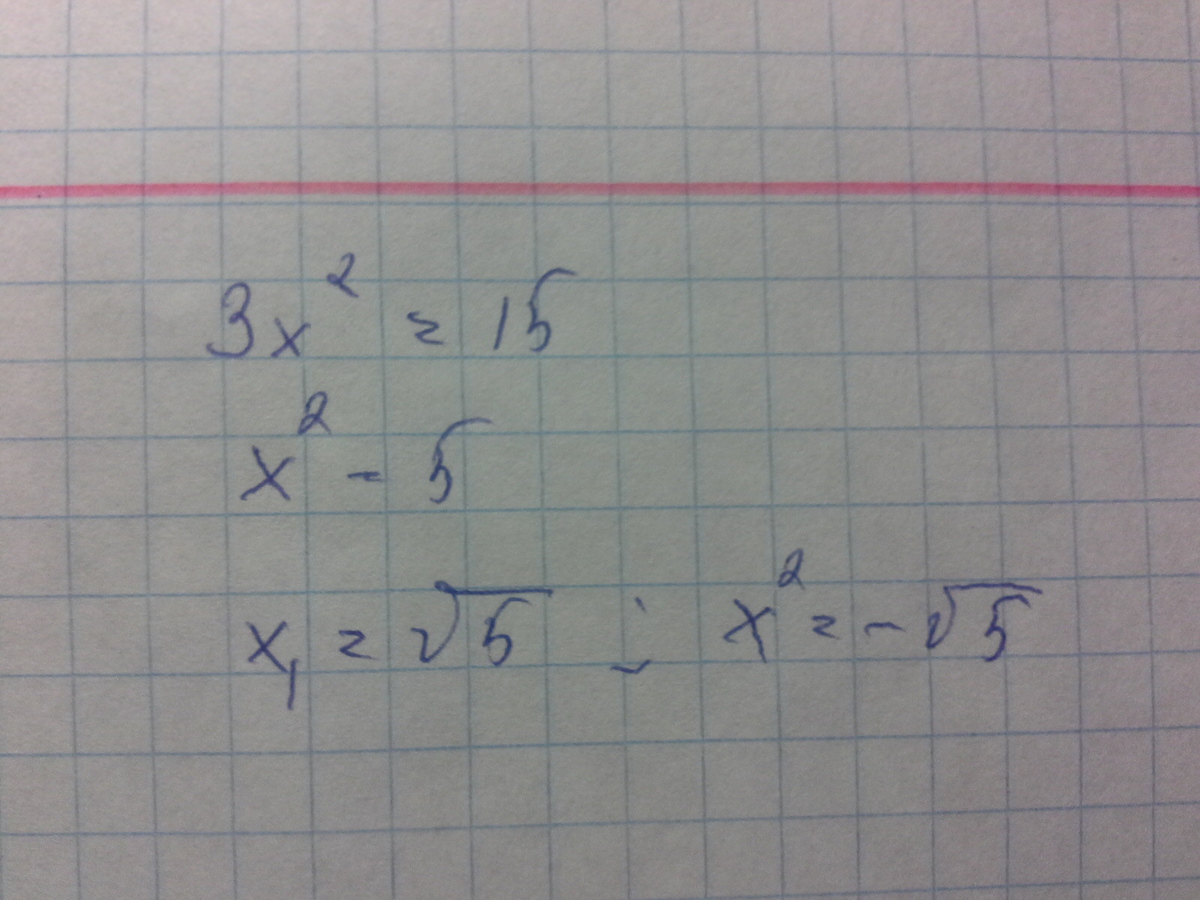 3x² = 15
x² - 5
x₁ = √5 ; x² = -√5